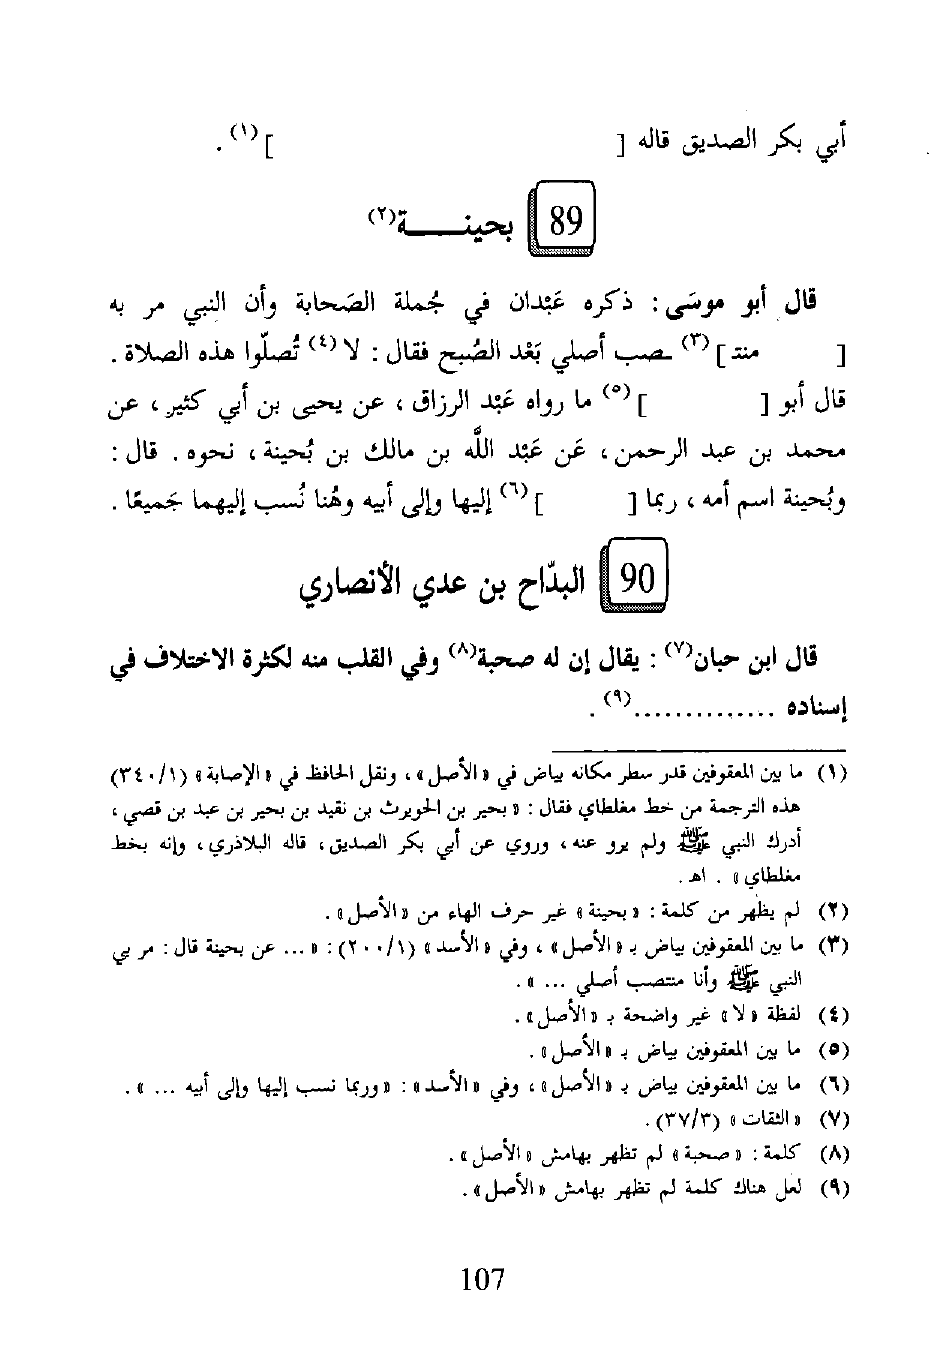 أبي بكر الصديق قاله [ ](١) .
89 بحينــــة(٢)
قال أبو موسَى : ذكره عَبْدان في جُملة الصَحابة وأن النبي مر به
[ منتـ ](٣) ـصب أصلي بَعْد الصُبح فقال : لا(٤) تُصلّوا هذه الصلاة .
قال أبو [ ](٥) ما رواه عَبْد الرزاق ، عن يحيى بن أبي كثير ، عن
محمد بن عبد الرحمن ، عَن عَبْد اللَّه بن مالك بن بُحينة ، نحوه . قال :
وبُحينة اسم أمه ، ربما [ ](٦) إليها وإلى أبيه وهُنا نُسب إليهما جَميعًا .
90 البدّاح بن عدي الأنصاري
قال ابن حبان(٧) : يقال إن له صحبة(٨) وفي القلب منه لكثرة الاختلاف في
إسناده ..............(٩) .
(١) ما بين المعقوفين قدر سطر مكانه بياض في «الأصل» ، ونقل الحافظ في «الإصابة» (١/ ٣٤٠)
هذه الترجمة من خط مغلطاي فقال : «بحير بن الحويرث بن نقيد بن بحير بن عبد بن قصي ،
أدرك النبي ﷺ ولم يرو عنه ، وروي عن أبي بكر الصديق ، قاله البلاذري ، وإنه بخط
مغلطاي» . اهـ .
(٢) لم يظهر من كلمة : «بحينة» غير حرف الهاء من «الأصل» .
(٣) ما بين المعقوفين بياض بـ «الأصل» ، وفي «الأسد» (١/ ٢٠٠) : «... عن بحينة قال : مر بي
النبي ﷺ وأنا منتصب أصلي ...» .
(٤) لفظة «لا» غير واضحة بـ «الأصل» .
(٥) ما بين المعقوفين بياض بـ «الأصل» .
(٦) ما بين المعقوفين بياض بـ «الأصل» ، وفي «الأسد» : «وربما نسب إليها وإلى أبيه ...» .
(٧) «الثقات» (٣/ ٣٧) .
(٨) كلمة : «صحبة» لم تظهر بهامش «الأصل» .
(٩) لعل هناك كلمة لم تظهر بهامش «الأصل» .
107